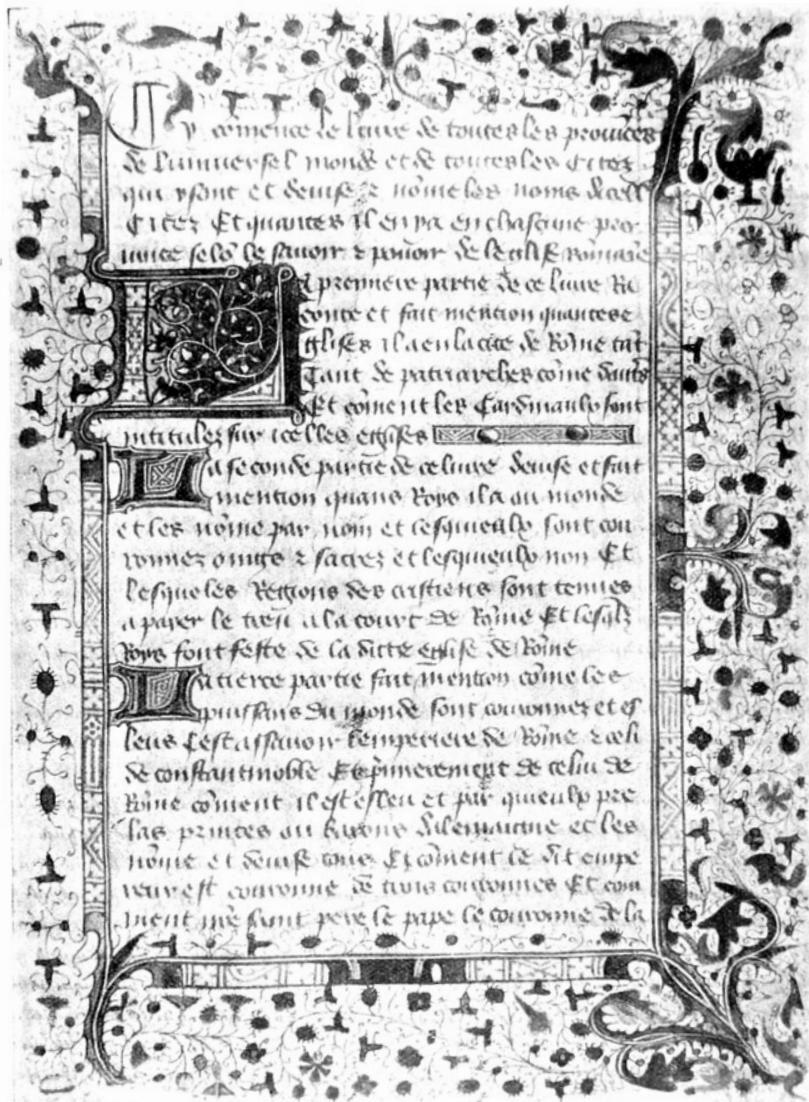 Cy cõmence le livre de toutes les provĩces
de luniversel monde et de toutes les Citez
qui y sont et devise & nõme les noms dicell
Citez Et quantes il en ya en chascune pro
vince selõ le savoir & povoir de leglise rõmaĩe
La premiere partie de ce livre Ra
conte et fait mention quantes e
glises il a en la cite de Rõme tãt
Tant de patriarches cõme dautrs
Et cõment les Cardinaulx sont
intitulez sur icelles eglises
La seconde partie de ce livre devise et fait
mention quans Roys il a ou monde
et les nõme par nom et lesquieulx sont cou
ronnez oingts & sacrez et lesquieulx non Et
lesqueles Regions des crestiens sont tenues
a paier le treu a la court de Rõme Et lesqlz
Roys font feste de la ditte eglise de Rõme
La tierce partie fait mention cõme les
puissans du monde sont couronnez et es
leus Cest assavoir lemperiere de Rõme & celi
de constantinoble Et p̃mierement de celui de
Rõme cõment il est esleu et par quieulx pre
las princes ou barons dalemaigne et les
nõme et devise tous Et cõment le dit empe
reur est couronne de trois couronnes Et com
ment nr̃e saint pere le pape le couronne de la